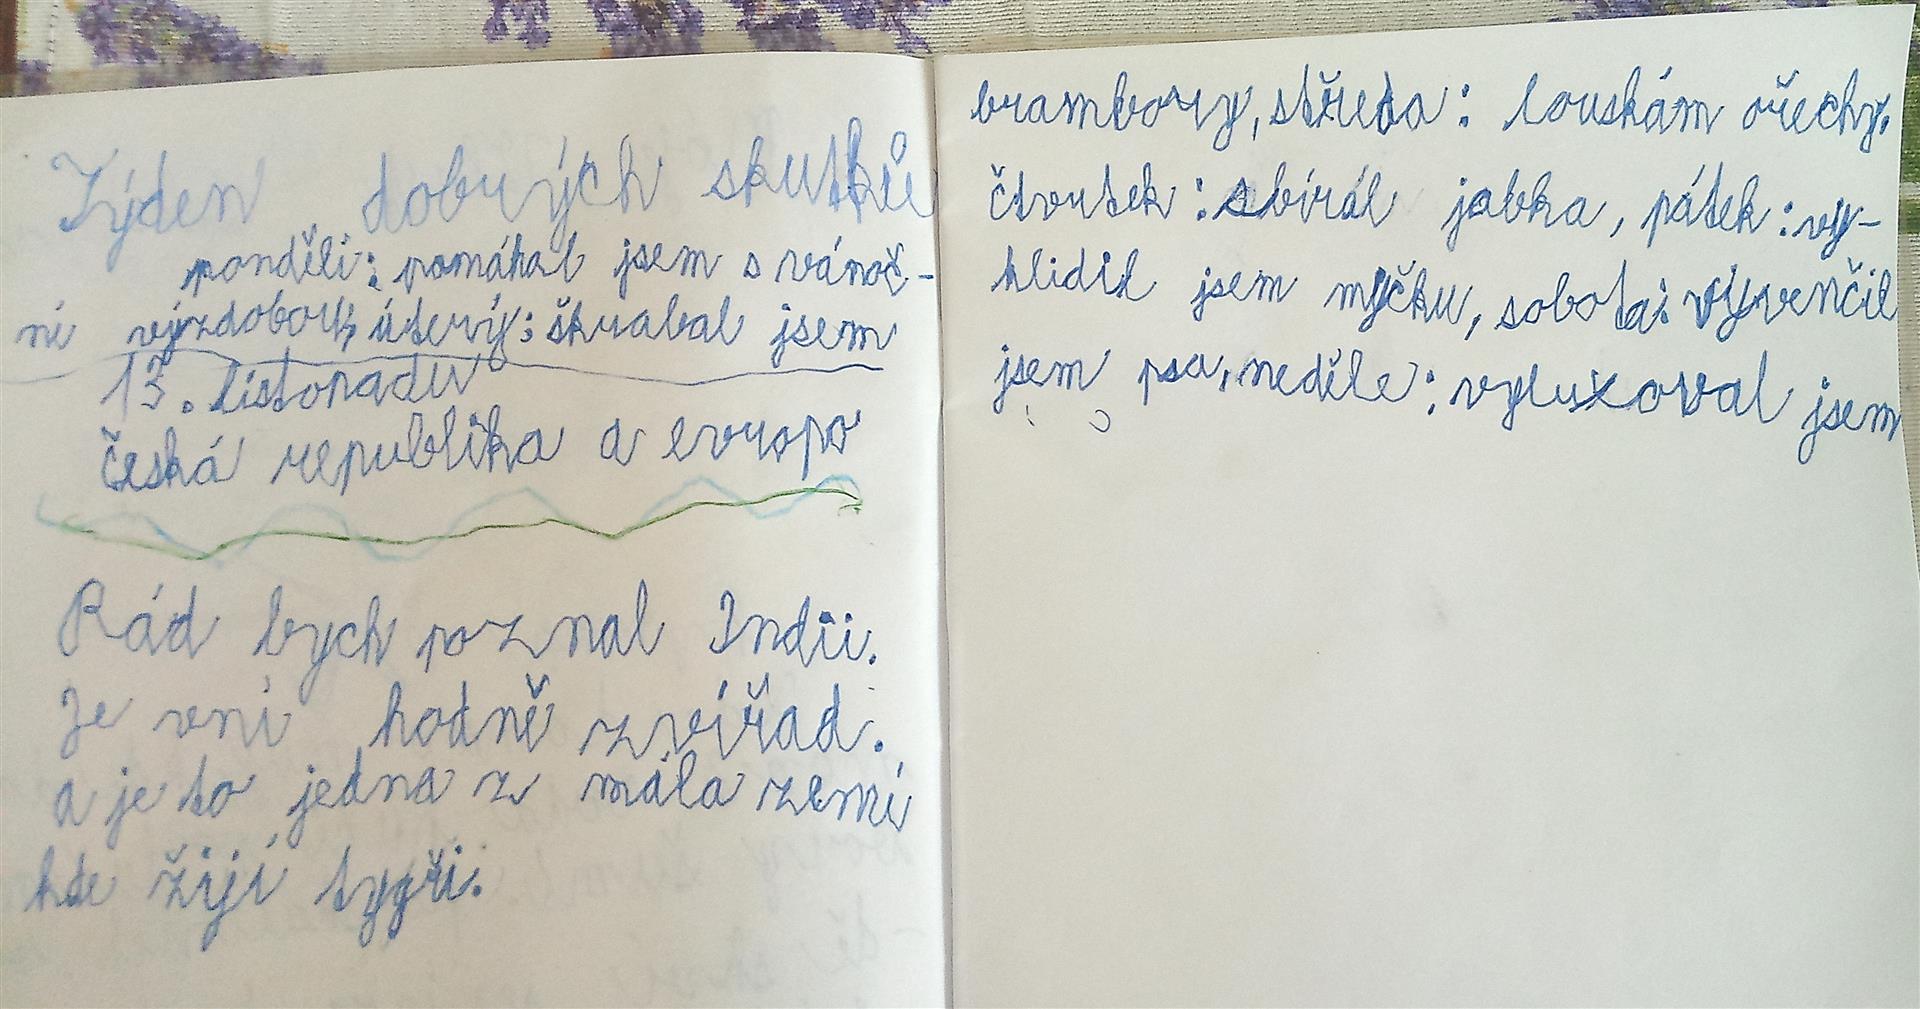 Týden dobrých skutků
pondělí: pomáhal jsem s vánoč-
ní výzdobou, úterý: škrabal jsem
13. listopadu
česká republika a evropa
Rád bych poznal Indii.
Je vní hodně zvířad.
a je to jedna z mála zemí
kde žijí tygři.
brambory, středa: louskám ořechy.
čtvrtek: sbírál jabka, pátek: vy-
klidil jsem myčku, sobota: vyvenčil
jsem psa, neděle: vyluxoval jsem